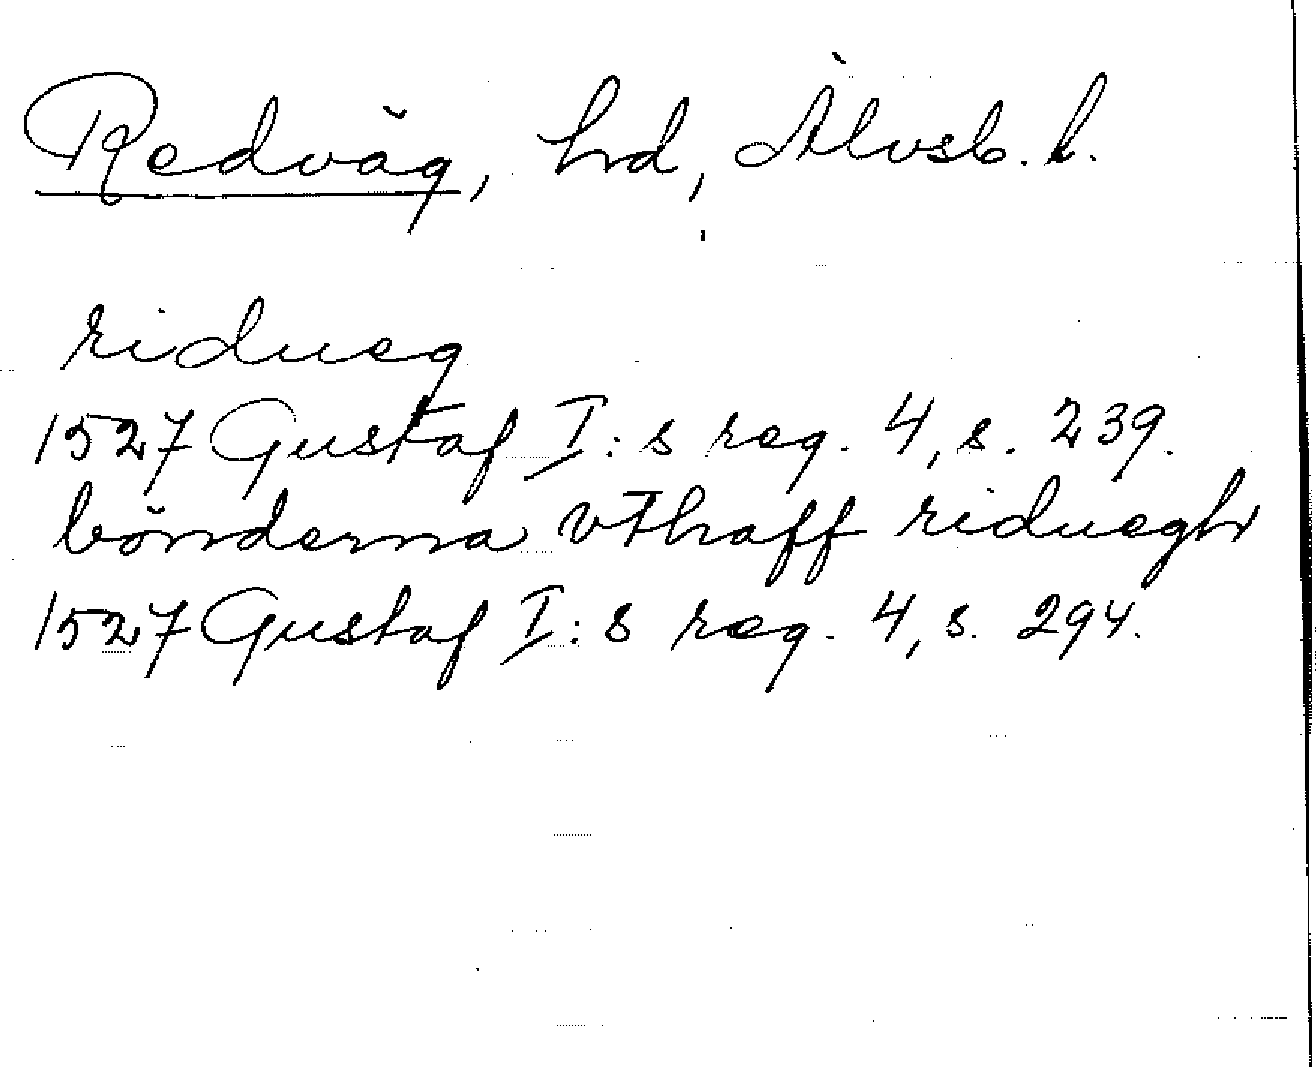 Redväg, hd, Älvsb. l.
ridueg
1527 Gustaf I:s reg. 4, s. 239.
bönderna vthaff riduegh
1527 Gustaf I:s reg. 4, s. 294.